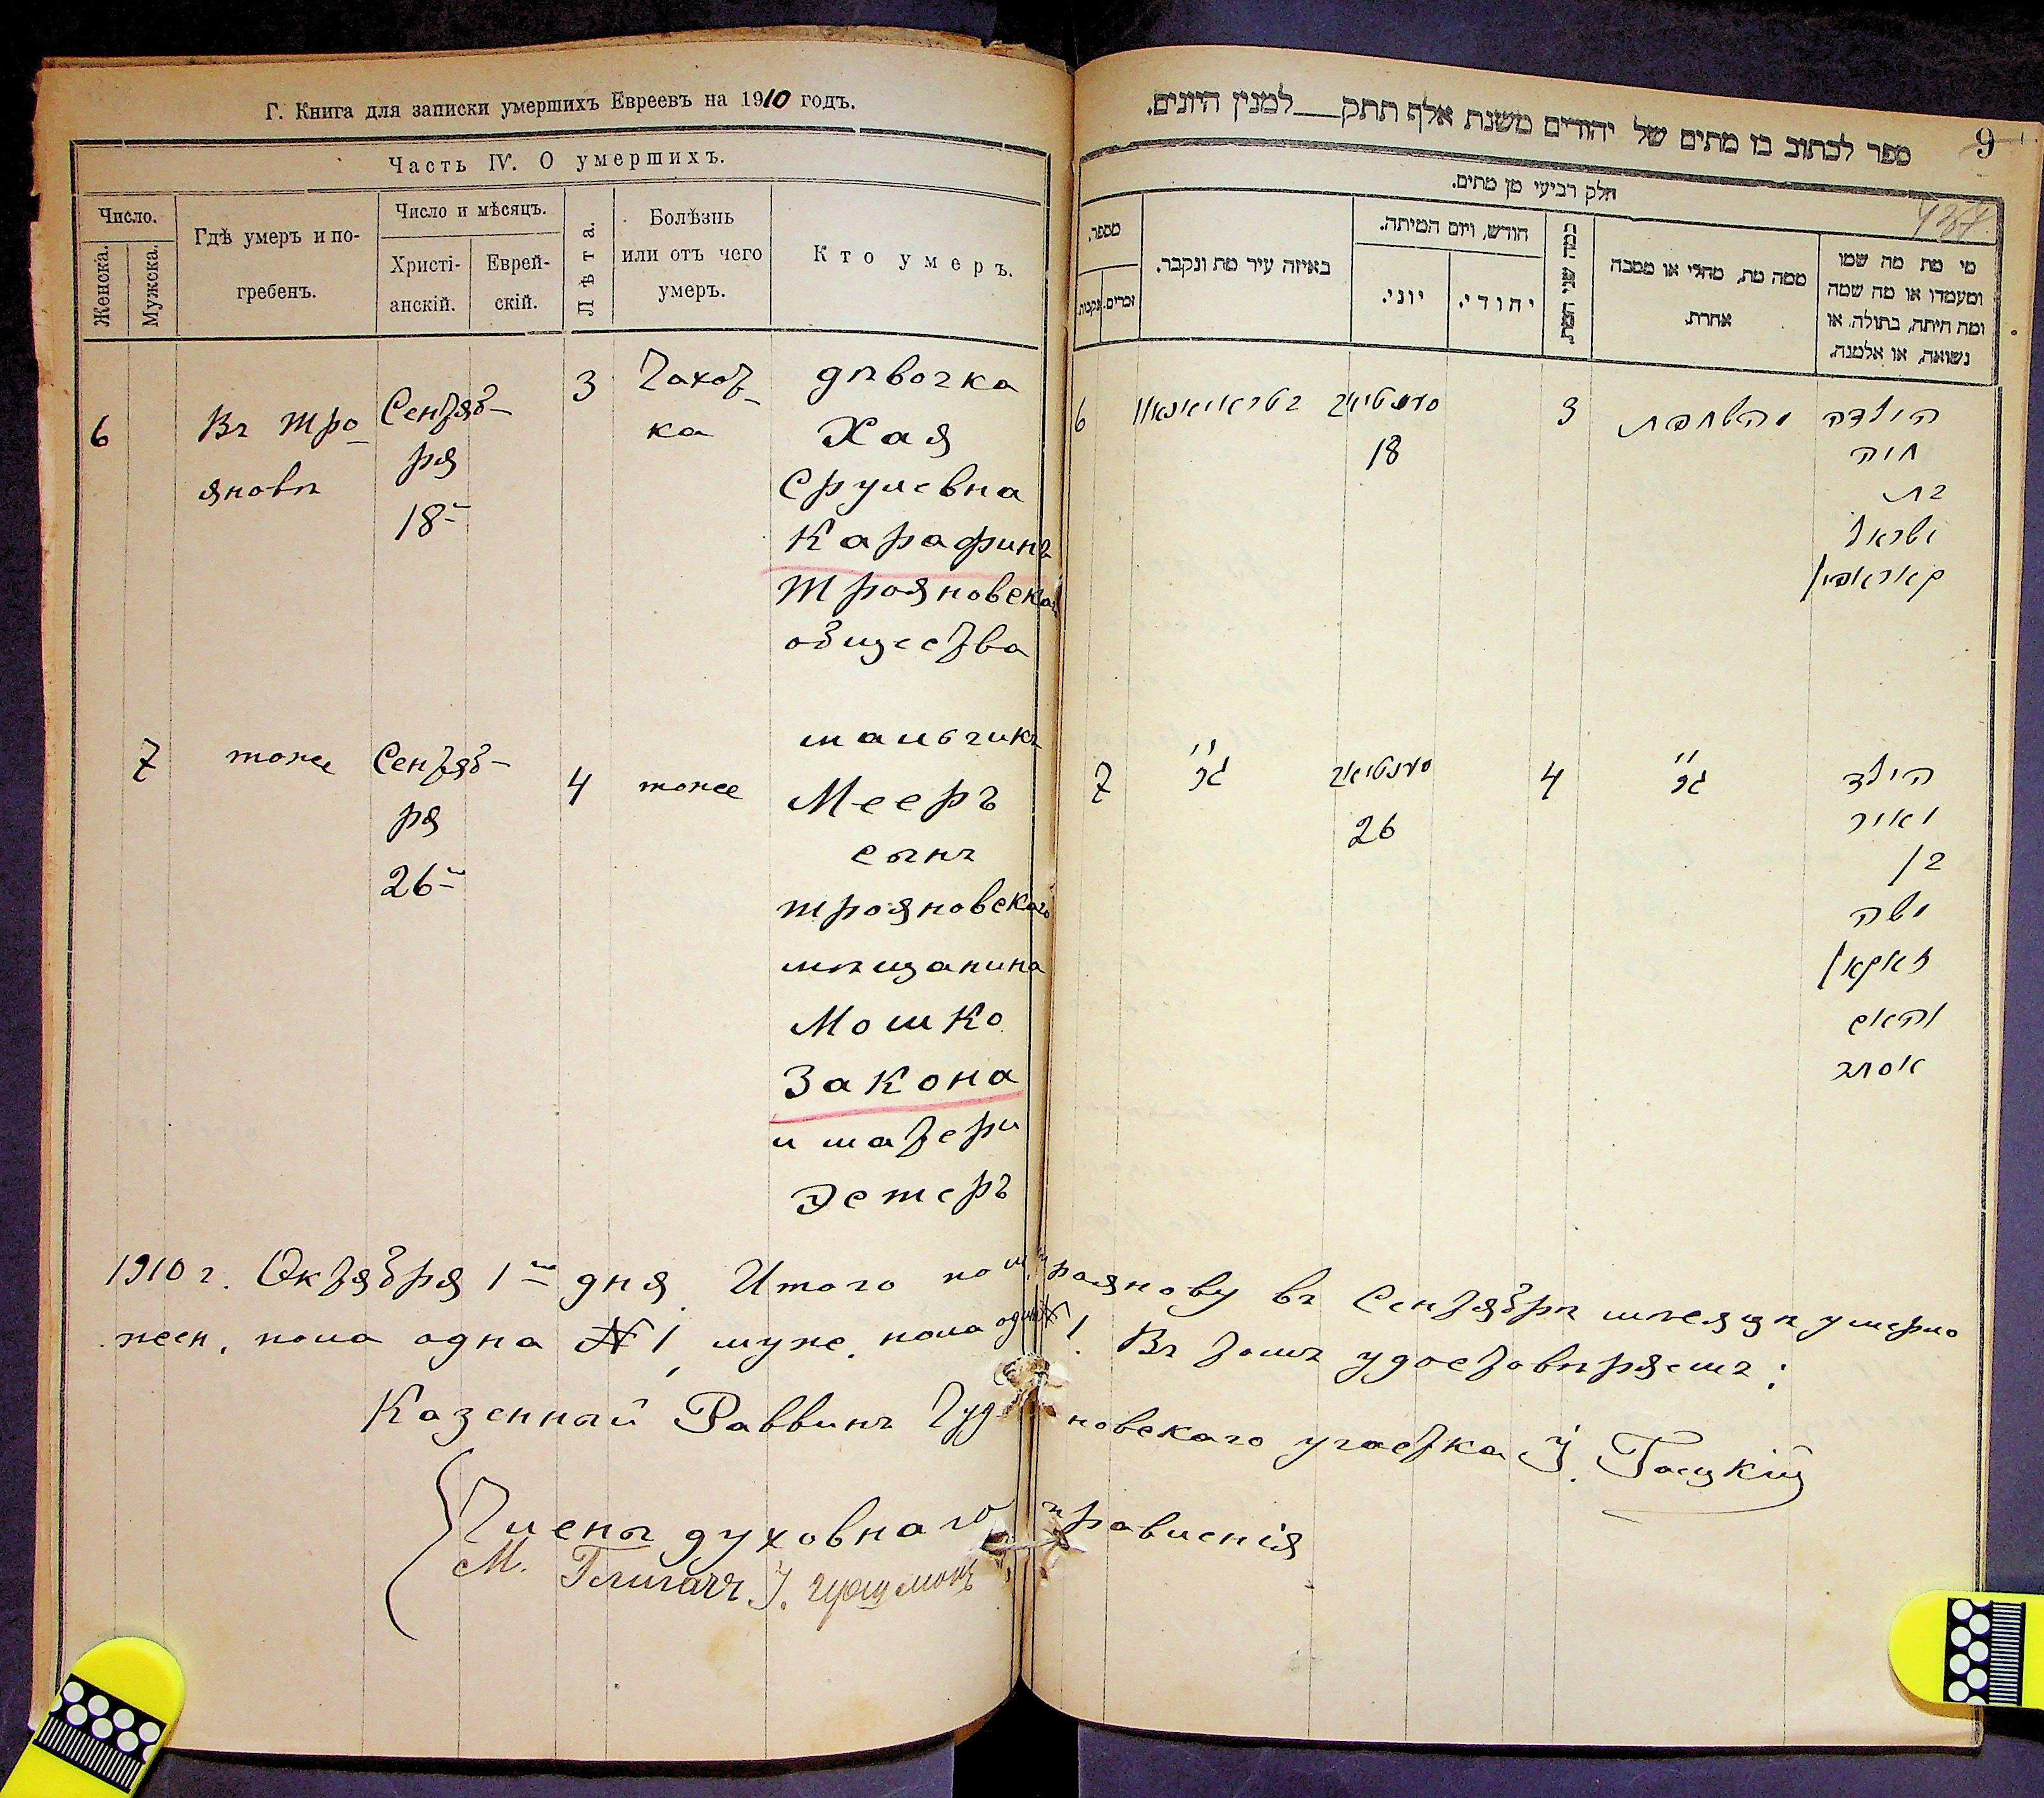 Г. Книга для записки умершихъ Евреевъ на 1910 годъ.
Часть IV. О умершихъ.
Число.
Женска.
Мужска.
Гдѣ умеръ и по-
гребенъ.
Число и мѣсяцъ.
Христі-
анскій.
Еврей-
скій.
Лѣта.
Болѣзнь
или отъ чего
умеръ.
Кто умеръ.
6
Въ Тро-
яновѣ
Сентяб-
ря
18
3
Чахот-
ка
дѣвочка
Хая
Срулевна
Карафинъ
Трояновскаго
общества
7
тоже
Сентяб-
ря
26
4
тоже
мальчикъ
Мееръ
сынъ
трояновскаго
мѣщанина
Мошко
Закона
и матери
Эстеръ
ספר לכתוב בו מתים של יהודים משנת אלף תתק___למנין היונים.
9
חלק רביעי מן מתים.
מספר.
נקבות.
זכרים.
באיזה עיר מת ונקבר.
חודש, ויום המיתה.
יוני.
יהודי.
כמה שני המת.
ממה מת, מחלי או ממכה
אחרת.
מי מת מה שמו
ומעמדו או מה שמה
ומה היתה, בתולה, או
נשואה, או אלמנה.
6
סענטיאב
18
3
הילדה
חיה
בת
ישראל
קאראפין
7
סענטיאב
26
4
הילד
מאיר
בן
משה
זאקאן
והאם
אסתר
1910 г. Октября 1 дня. Итого по м. Троянову въ Сентябрѣ мѣсяцѣ умерло
жен. пола одна № 1, муж. пола одинъ № 1. Въ томъ удостовѣряемъ:
Казенный Раввинъ Чудновскаго участка И. Гальцкій
Члены духовнаго правленія